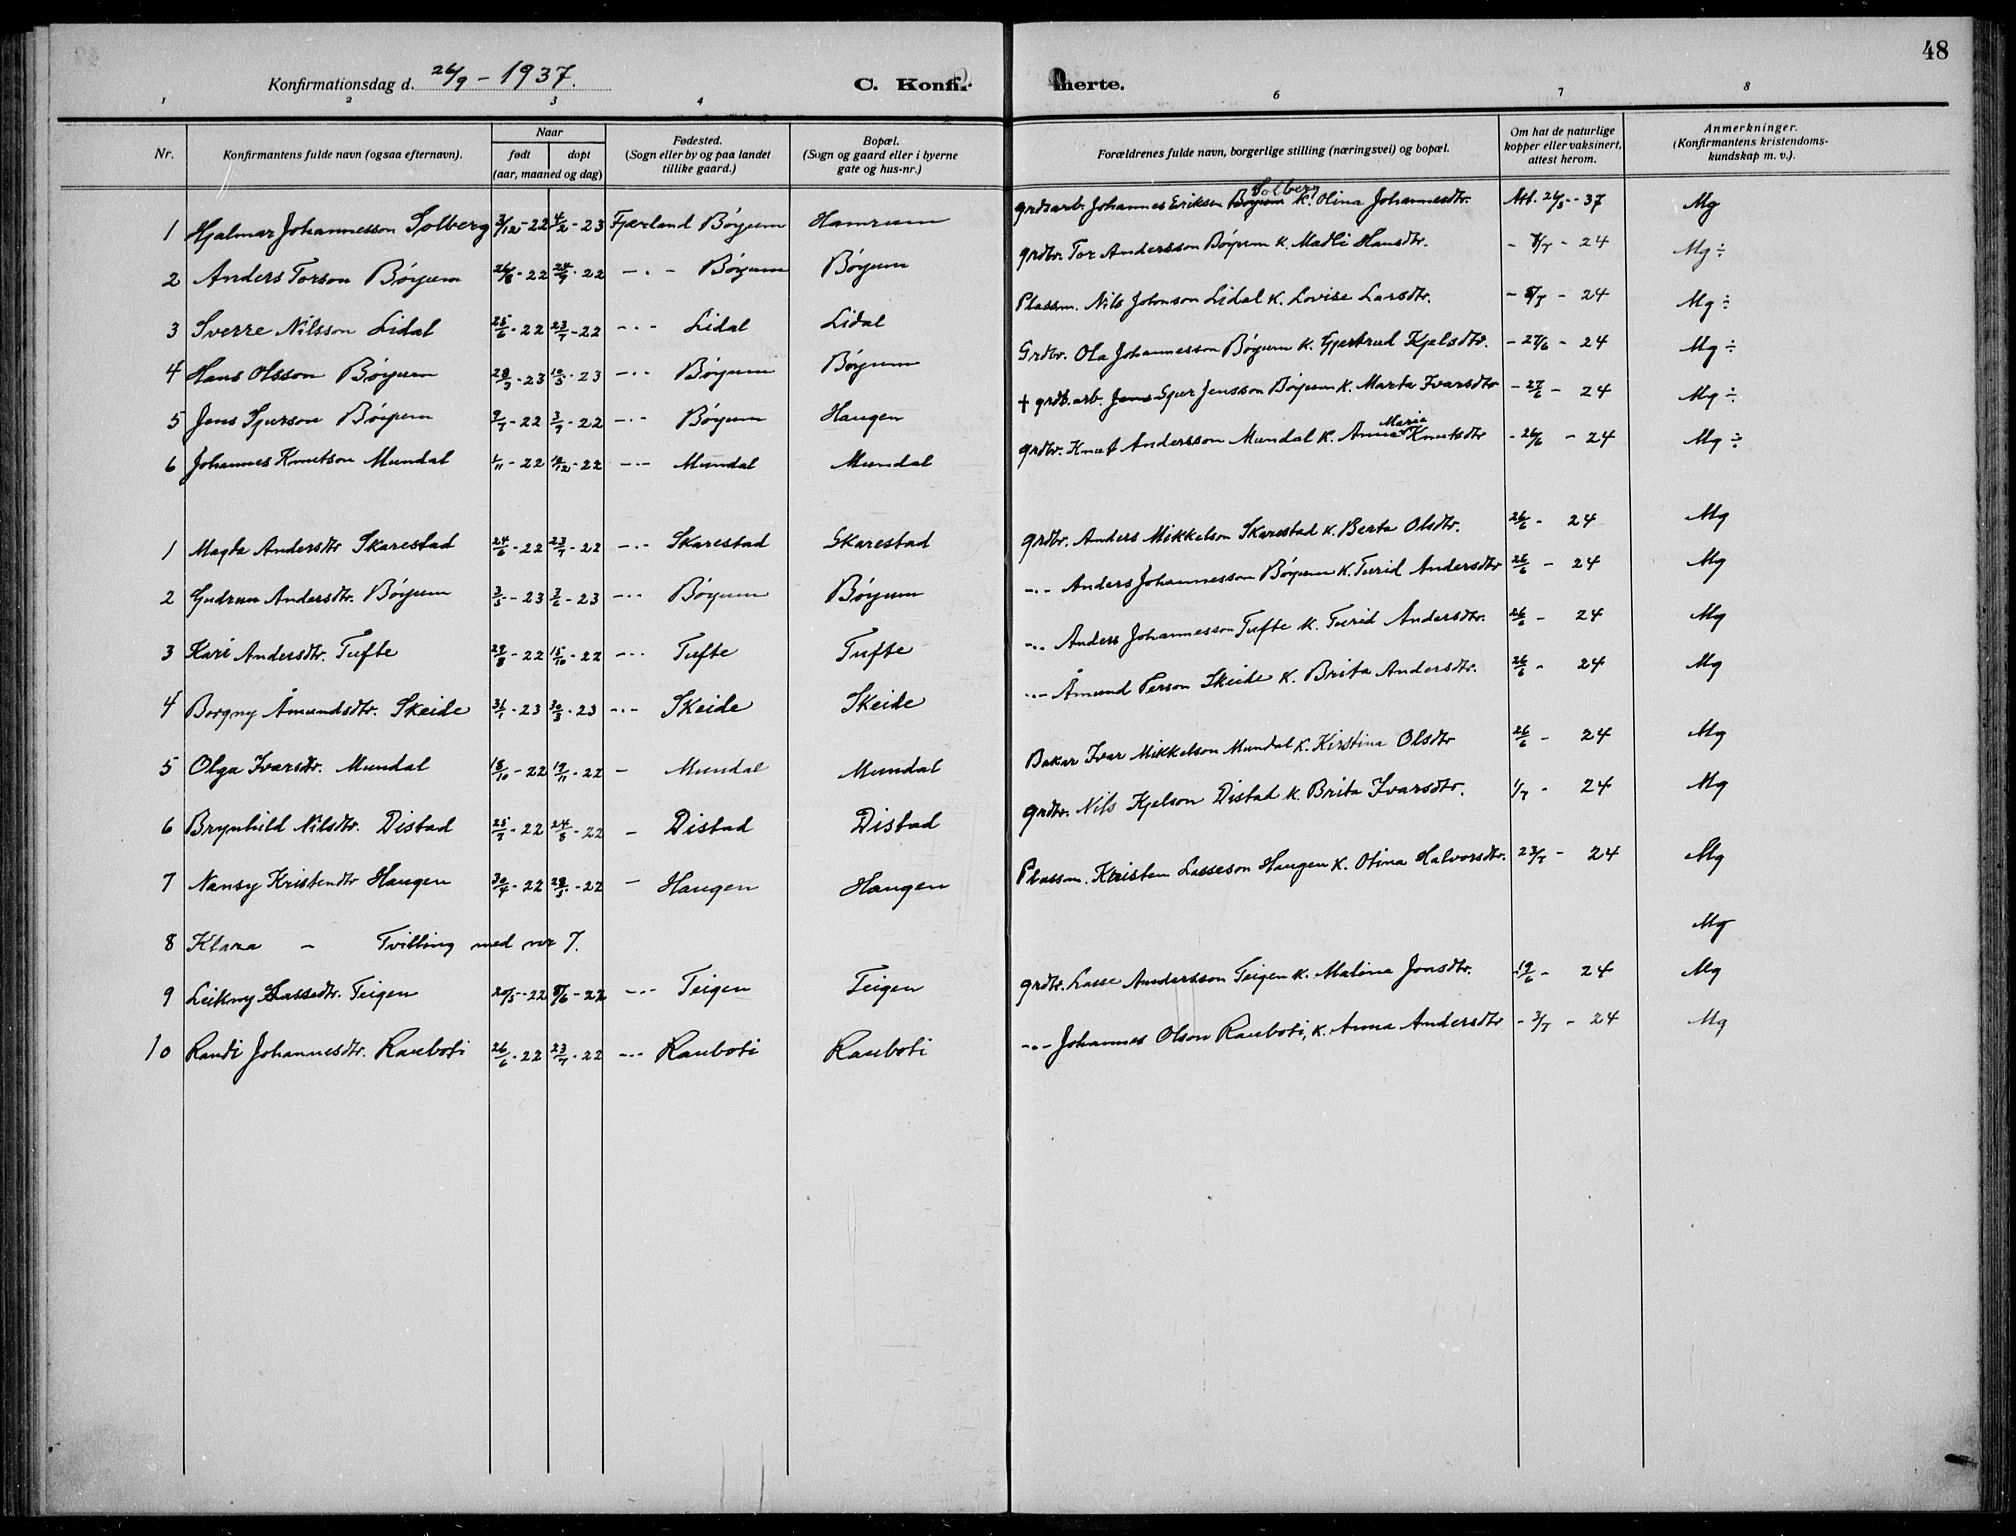 48
Konfirmationsdag d. 26/9 - 1937.
C. Konfir- merte.
1 2 3 4 6 7 8
Nr. Konfirmantens fulde navn (ogsaa efternavn). Naar født dopt (aar, maaned og dag) Fødested. (Sogn eller by og paa landet tillike gaard.) Bopæl. (Sogn og gaard eller i byerne gate og hus-nr.) Forældrenes fulde navn, borgerlige stilling (næringsvei) og bopæl. Om hat de naturlige kopper eller vaksinert, attest herom. Anmerkninger. (Konfirmantens kristendoms-kundskap m. v.).
1 Hjalmar Johannesson Solberg 3/12-22 4/2-23 Fjærland Bøyum Hamrum grdsarb. Johannes Eriksen Bøyum Solberg K. Olina Johannesdtr. Att. 26/5-37 Mg
2 Anders Torson Bøyum 26/8-22 24/9-22 -"- Bøyum Bøyum grdbr. Tor Andersson Bøyum K. Madli Hansdtr. - 8/7 - 24 Mg ÷
3 Sverre Nilsson Lidal 25/6-22 23/7-22 -"- Lidal Lidal Plassm. Nils Johnson Lidal K. Lovise Larsdtr. - 8/7 - 24 Mg ÷
4 Hans Olsson Bøyum 28/3-23 10/5-23 -"- Bøyum Bøyum Grdbr. Ola Johannesson Bøyum K. Gjertrud Kjelsdtr. - 27/6 - 24 Mg ÷
5 Jens Sjurson Bøyum 9/7-22 3/9-22 -"- Bøyum Haugen + grdb.arb. Jens Sjur Jensson Bøyum K. Marta Ivarsdtr - 27/6 - 24 Mg ÷
6 Johannes Knutson Mundal 1/11-22 10/12-22 -"- Mundal Mundal grdbr. Knut Andersson Mundal K. Anna Marie Knutsdtr - 26/6 - 24 Mg ÷
1 Magda Andersdtr Skarestad 24/6-22 23/7-22 -"- Skarestad Skarestad grdbr. Anders Mikkelson Skarestad K. Berta Olsdtr. 26/6 - 24 Mg
2 Gudrun Andersdtr. Bøyum 3/5-23 3/6-23 -"- Bøyum Bøyum -"- Anders Johannesson Bøyum K. Turid Andersdtr 26/6 - 24 Mg
3 Kari Andersdtr. Tufte 29/8-22 15/10-22 -"- Tufte Tufte -"- Anders Johannesson Tufte K. Turid Andersdtr. 26/6 - 24 Mg
4 Borgny Åmundsdtr. Skeide 31/1-23 30/3-23 -"- Skeide Skeide -"- Åmund Person Skeide K. Brita Andersdtr. 26/6 - 24 Mg
5 Olga Ivarsdtr. Mundal 18/10-22 19/11-22 - Mundal Mundal Bakar Ivar Mikkelson Mundal K. Kirstina Olsdtr 26/6 - 24 Mg
6 Brynhild Nilsdtr. Distad 25/7-22 24/8-22 - Distad Distad grdbr. Nils Kjelson Distad K. Brita Ivarsdtr. 1/7 - 24 Mg
7 Nansy Kristendtr Haugen 30/4-22 28/5-22 - Haugen Haugen Plassm. Kristen Lasseson Haugen K. Otina Halvorsdtr. 23/7 - 24 Mg
8 Klara - Tvilling med nr 7. Mg
9 Leikny Lassedtr. Teigen 20/5-22 5/6-22 -"- Teigen Teigen grdbr. Lasse Andersson Teigen K. Malina Jonsdtr. 19/6 - 24 Mg
10 Randi Johannesdtr. Rauboti 26/6-22 23/7-22 -"- Rauboti Rauboti -"- Johannes Olson Rauboti, K. Anna Andersdtr - 3/7 - 24 Mg